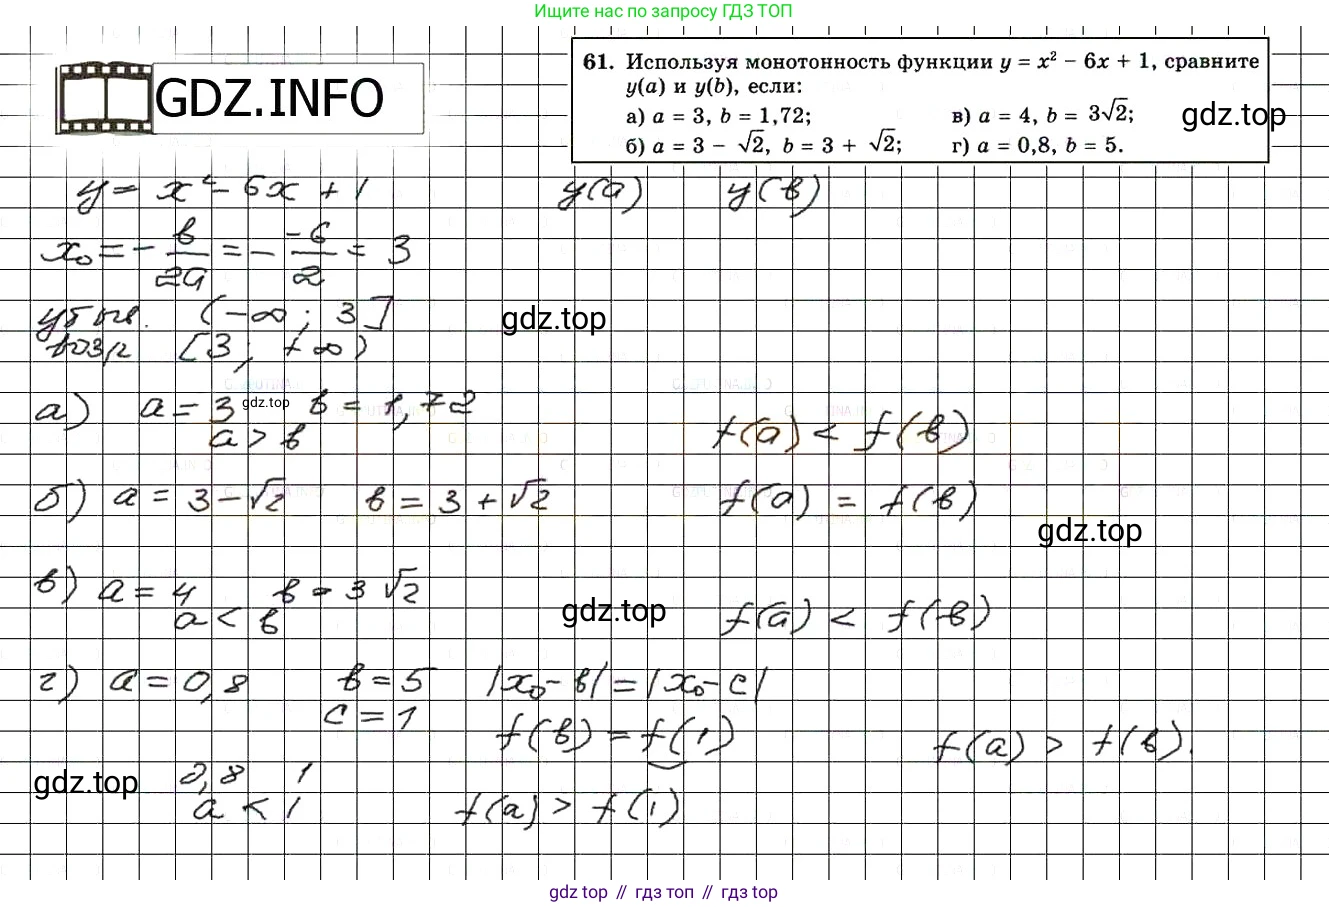 Ищите нас по запросу ГДЗ ТОП
GDZ.INFO
61. Используя монотонность функции y = x² − 6x + 1, сравните
y(a) и y(b), если:
а) a = 3, b = 1,72;
в) a = 4, b = 3√2;
б) a = 3 − √2, b = 3 + √2;
г) a = 0,8, b = 5.
gdz.top
y = x² − 6x + 1
y(a) y(в)
x₀ = − в/2a = − −6/2 = 3
убыв. (−∞; 3]
возр [3; +∞)
gdz.top
а) a = 3 в = 1,72
gdz.top
a > в
f(a) < f(в)
б) a = 3 − √2 в = 3 + √2
f(a) = f(в)
gdz.top
в) a = 4 в = 3√2
a < в
gdz.top
f(a) < f(в)
г) a = 0,8 в = 5 |x₀ − в| = |x₀ − c|
c = 1 f(в) = f(1)
f(a) > f(в).
gdz.top
0,8 1
a < 1 f(a) > f(1)
gdz top // гдз топ // гдз top